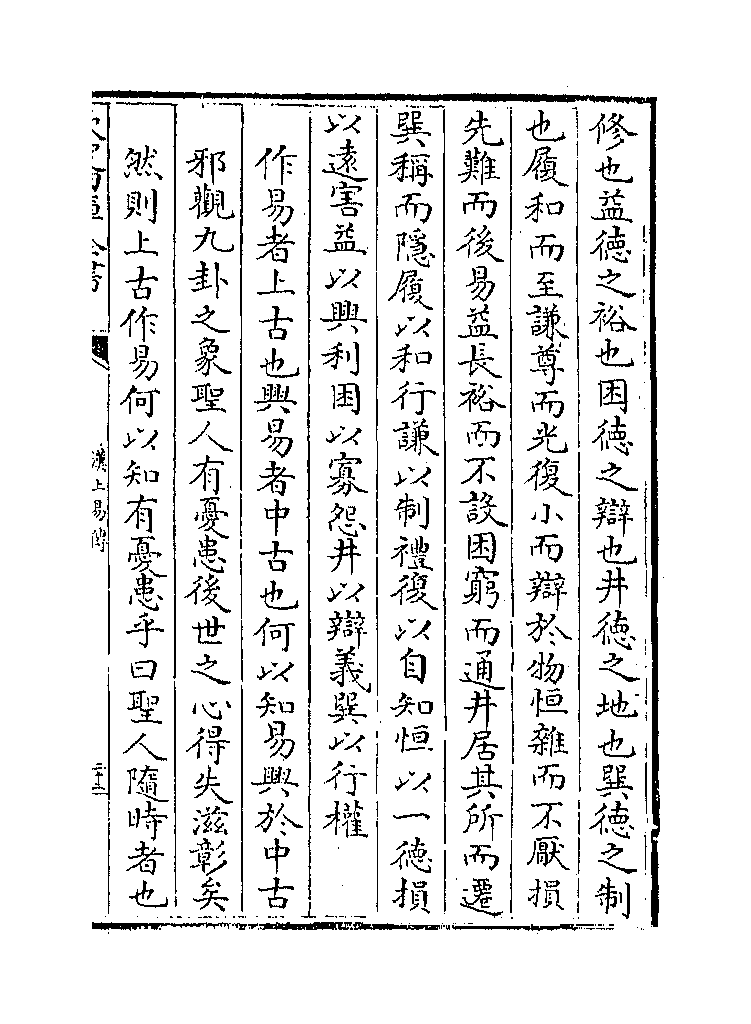 修也益德之裕也困德之辯也井德之地也巽德之制
也履和而至謙尊而光復小而辯於物恒雜而不厭損
先難而後易益長裕而不設困窮而通井居其所而遷
巽稱而隱履以和行謙以制禮復以自知恒以一德損
以遠害益以興利困以寡怨井以辯義巽以行權
作易者上古也興易者中古也何以知易興於中古
邪觀九卦之象聖人有憂患後世之心得失滋彰矣
然則上古作易何以知有憂患乎曰聖人隨時者也
漢上易傳